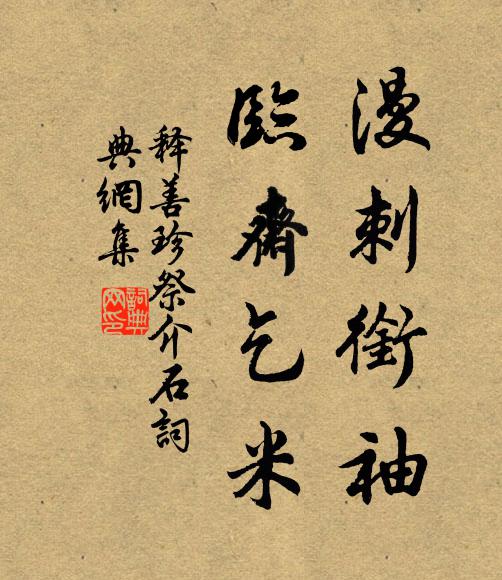 漫刺銜袖
臨齋乞米
释善珍祭介石詞
典網集
詞典网印